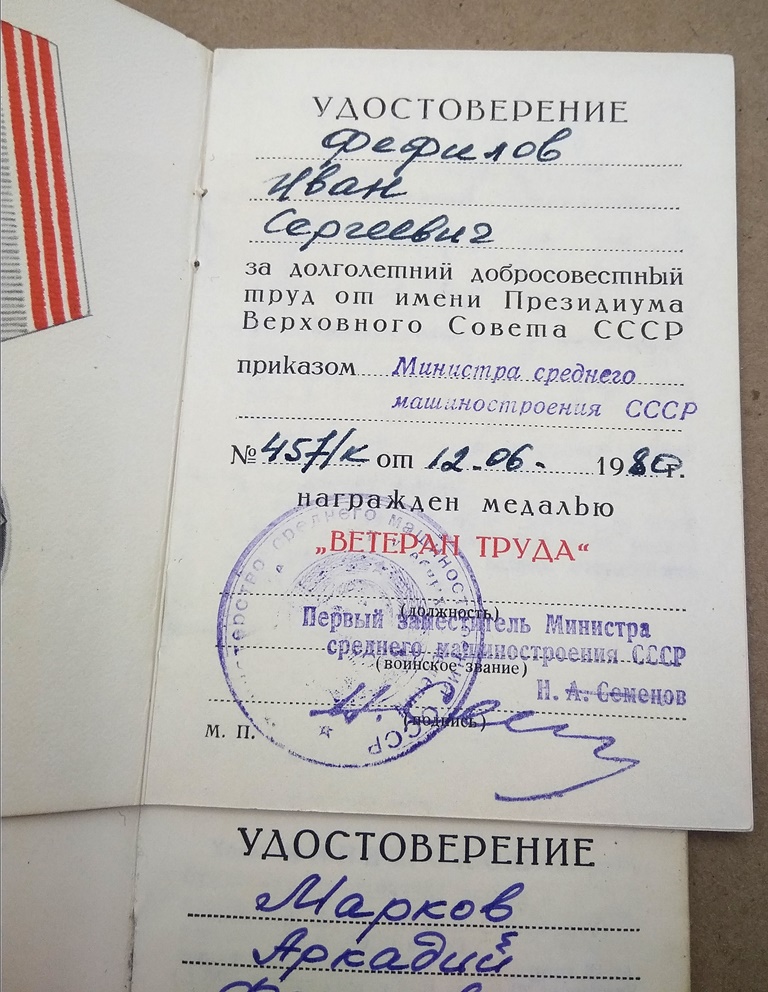 УДОСТОВЕРЕНИЕ
Фефилов
Иван
Сергеевич
за долголетний добросовестный
труд от имени Президиума
Верховного Совета СССР
приказом Министра среднего
машиностроения СССР
№ 457/к от 12.06. 1980г.
награжден медалью
„ВЕТЕРАН ТРУДА“
(должность)
Первый заместитель Министра
среднего машиностроения СССР
(воинское звание)
Н. А. Семенов
(подпись)
М. П.
УДОСТОВЕРЕНИЕ
Марков
Аркадий